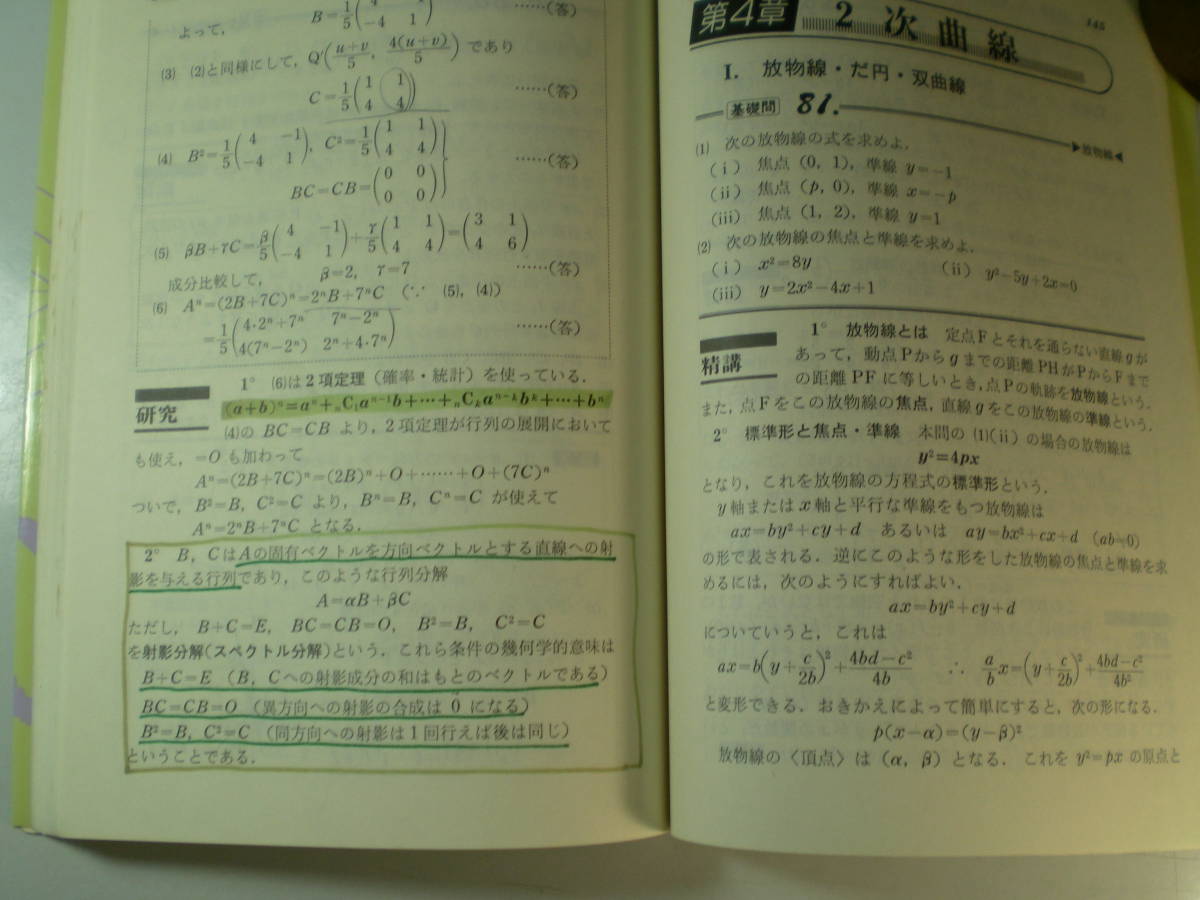 よって, B=1/5(4 −1 / −4 1) ……(答)
(3) (2)と同様にして, Q′((u+v)/5, 4(u+v)/5) であり
C=1/5(1 1 / 4 4) ……(答)
(4) B²=1/5(4 −1 / −4 1), C²=1/5(1 1 / 4 4)
BC=CB=(0 0 / 0 0) ……(答)
(5) βB+γC=β/5(4 −1 / −4 1)+γ/5(1 1 / 4 4)=(3 1 / 4 6)
成分比較して, β=2, γ=7 ……(答)
(6) Aⁿ=(2B+7C)ⁿ=2ⁿB+7ⁿC (∵ (5), (4))
=1/5(4·2ⁿ+7ⁿ 7ⁿ−2ⁿ / 4(7ⁿ−2ⁿ) 2ⁿ+4·7ⁿ) ……(答)
研究
1° (6)は2項定理(確率・統計)を使っている.
(a+b)ⁿ=aⁿ+ₙC₁aⁿ⁻¹b+…+ₙCₖaⁿ⁻ᵏbᵏ+…+bⁿ
(4)の BC=CB より, 2項定理が行列の展開において
も使え, =O も加わって
Aⁿ=(2B+7C)ⁿ=(2B)ⁿ+O+……+O+(7C)ⁿ
ついで, B²=B, C²=C より, Bⁿ=B, Cⁿ=C が使えて
Aⁿ=2ⁿB+7ⁿC となる.
2° B, CはAの固有ベクトルを方向ベクトルとする直線への射
影を与える行列であり, このような行列分解
A=αB+βC
ただし, B+C=E, BC=CB=O, B²=B, C²=C
を射影分解(スペクトル分解)という. これら条件の幾何学的意味は
B+C=E (B, Cへの射影成分の和はもとのベクトルである)
BC=CB=O (異方向への射影の合成は 0⃗ になる)
B²=B, C²=C (同方向への射影は1回行えば後は同じ)
ということである.
145
第4章 2次曲線
I. 放物線・だ円・双曲線
基礎問 81.
▶放物線◀
(1) 次の放物線の式を求めよ.
(i) 焦点 (0, 1), 準線 y=−1
(ii) 焦点 (p, 0), 準線 x=−p
(iii) 焦点 (1, 2), 準線 y=1
(2) 次の放物線の焦点と準線を求めよ.
(i) x²=8y (ii) y²−5y+2x=0
(iii) y=2x²−4x+1
精講
1° 放物線とは 定点Fとそれを通らない直線gが
あって, 動点Pからgまでの距離PHがPからFまで
の距離PFに等しいとき, 点Pの軌跡を放物線という.
また, 点Fをこの放物線の焦点, 直線gをこの放物線の準線という.
2° 標準形と焦点・準線 本問の (1)(ii) の場合の放物線は
y²=4px
となり, これを放物線の方程式の標準形という.
y軸またはx軸と平行な準線をもつ放物線は
ax=by²+cy+d あるいは ay=bx²+cx+d (ab≠0)
の形で表される. 逆にこのような形をした放物線の焦点と準線を求
めるには, 次のようにすればよい.
ax=by²+cy+d
についていうと, これは
ax=b(y+c/2b)²+(4bd−c²)/4b ∴ a/b x=(y+c/2b)²+(4bd−c²)/4b²
と変形できる. おきかえによって簡単にすると, 次の形になる.
p(x−α)=(y−β)²
放物線の〈頂点〉は (α, β) となる. これを y²=px の原点と